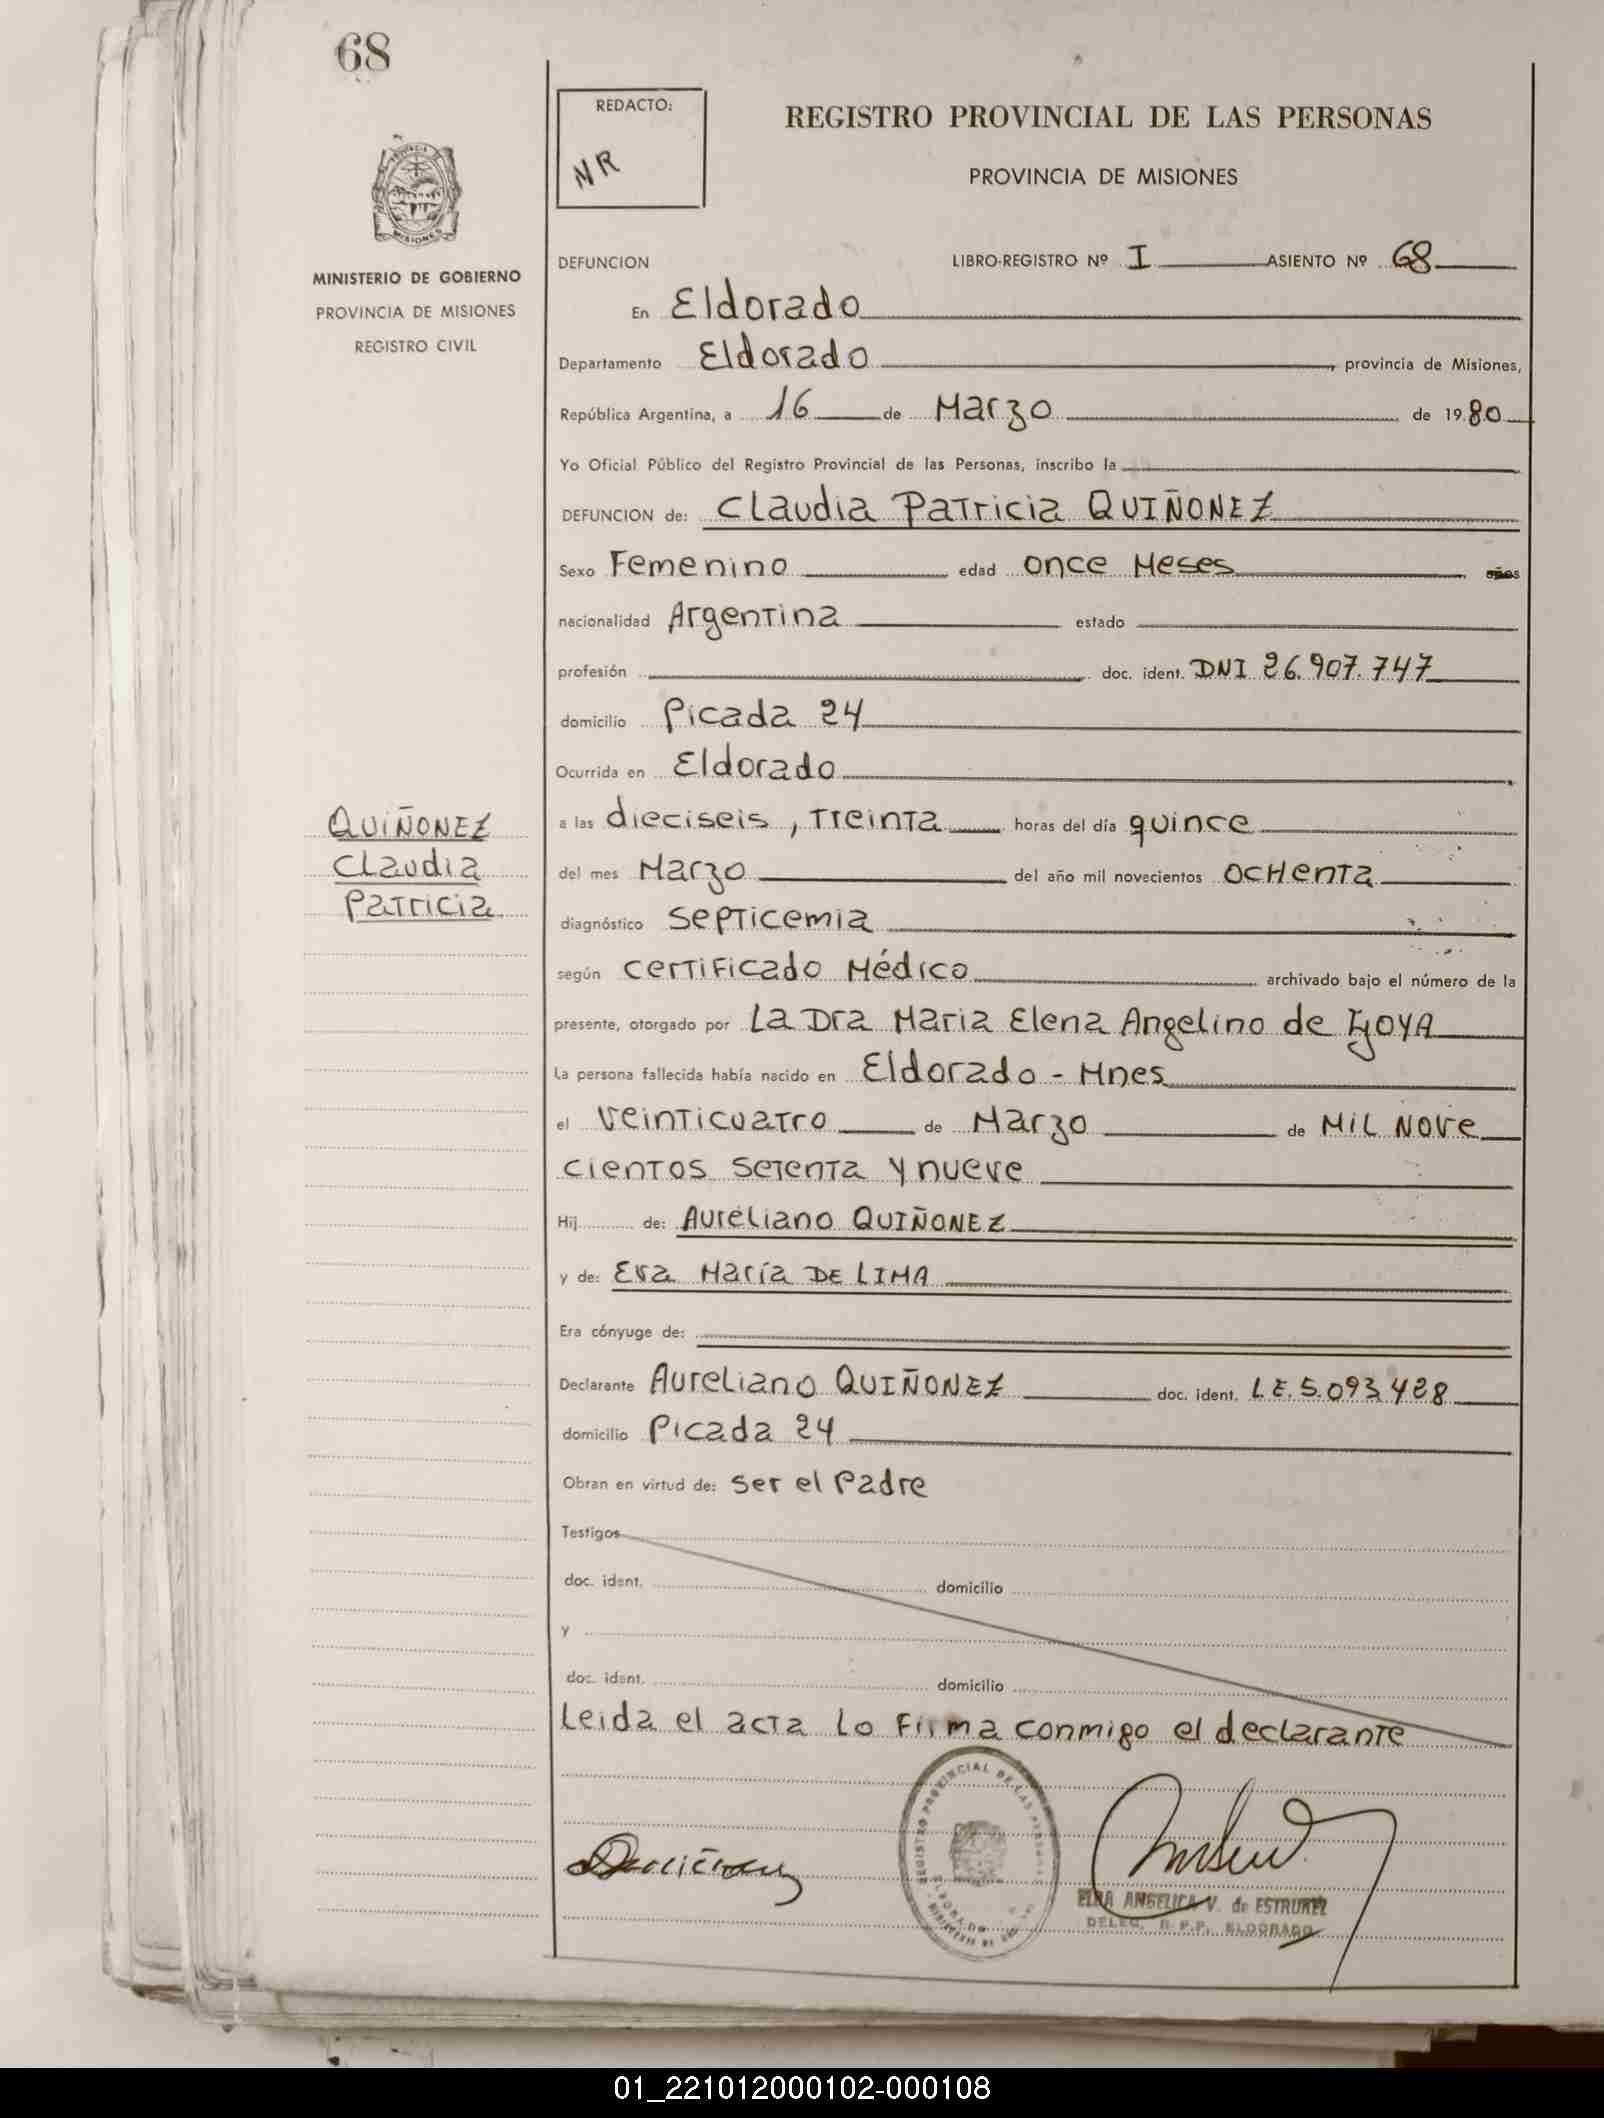 68
REDACTO:
NR
REGISTRO PROVINCIAL DE LAS PERSONAS
PROVINCIA DE MISIONES
MISIONES
MINISTERIO DE GOBIERNO
PROVINCIA DE MISIONES
REGISTRO CIVIL
DEFUNCION LIBRO-REGISTRO Nº I ASIENTO Nº 68
En Eldorado
Departamento Eldorado, provincia de Misiones,
República Argentina, a 16 de Marzo de 1980
Yo Oficial Público del Registro Provincial de las Personas, inscribo la
DEFUNCION de: Claudia Patricia QUIÑONEZ
Sexo Femenino edad once Meses años
nacionalidad Argentina estado
profesión doc. ident. DNI 26.907.747
domicilio Picada 24
Ocurrida en Eldorado
a las dieciseis, treinta horas del día quince
del mes Marzo del año mil novecientos ochenta
QUIÑONEZ
Claudia
Patricia
diagnóstico septicemia
según certificado Médico archivado bajo el número de la
presente, otorgado por La Dra Maria Elena Angelino de
La persona fallecida había nacido en Eldorado - Mnes
el veinticuatro de Marzo de MIL NOVE
cientos setenta y nueve
Hij de: Aureliano QUIÑONEZ
y de: Eva María DE LIMA
Era cónyuge de:
Declarante Aureliano QUIÑONEZ doc. ident. L.E. 5.093.428
domicilio Picada 24
Obran en virtud de: ser el Padre
Testigos
doc. ident. domicilio
y
doc. ident. domicilio
Leida el acta lo firma conmigo el declarante
REGISTRO PROVINCIAL DE LAS PERSONAS
ELDORADO
ANGELICA V. de ESTRUKEL
DELEG. R.P.P. ELDORADO
01_221012000102-000108